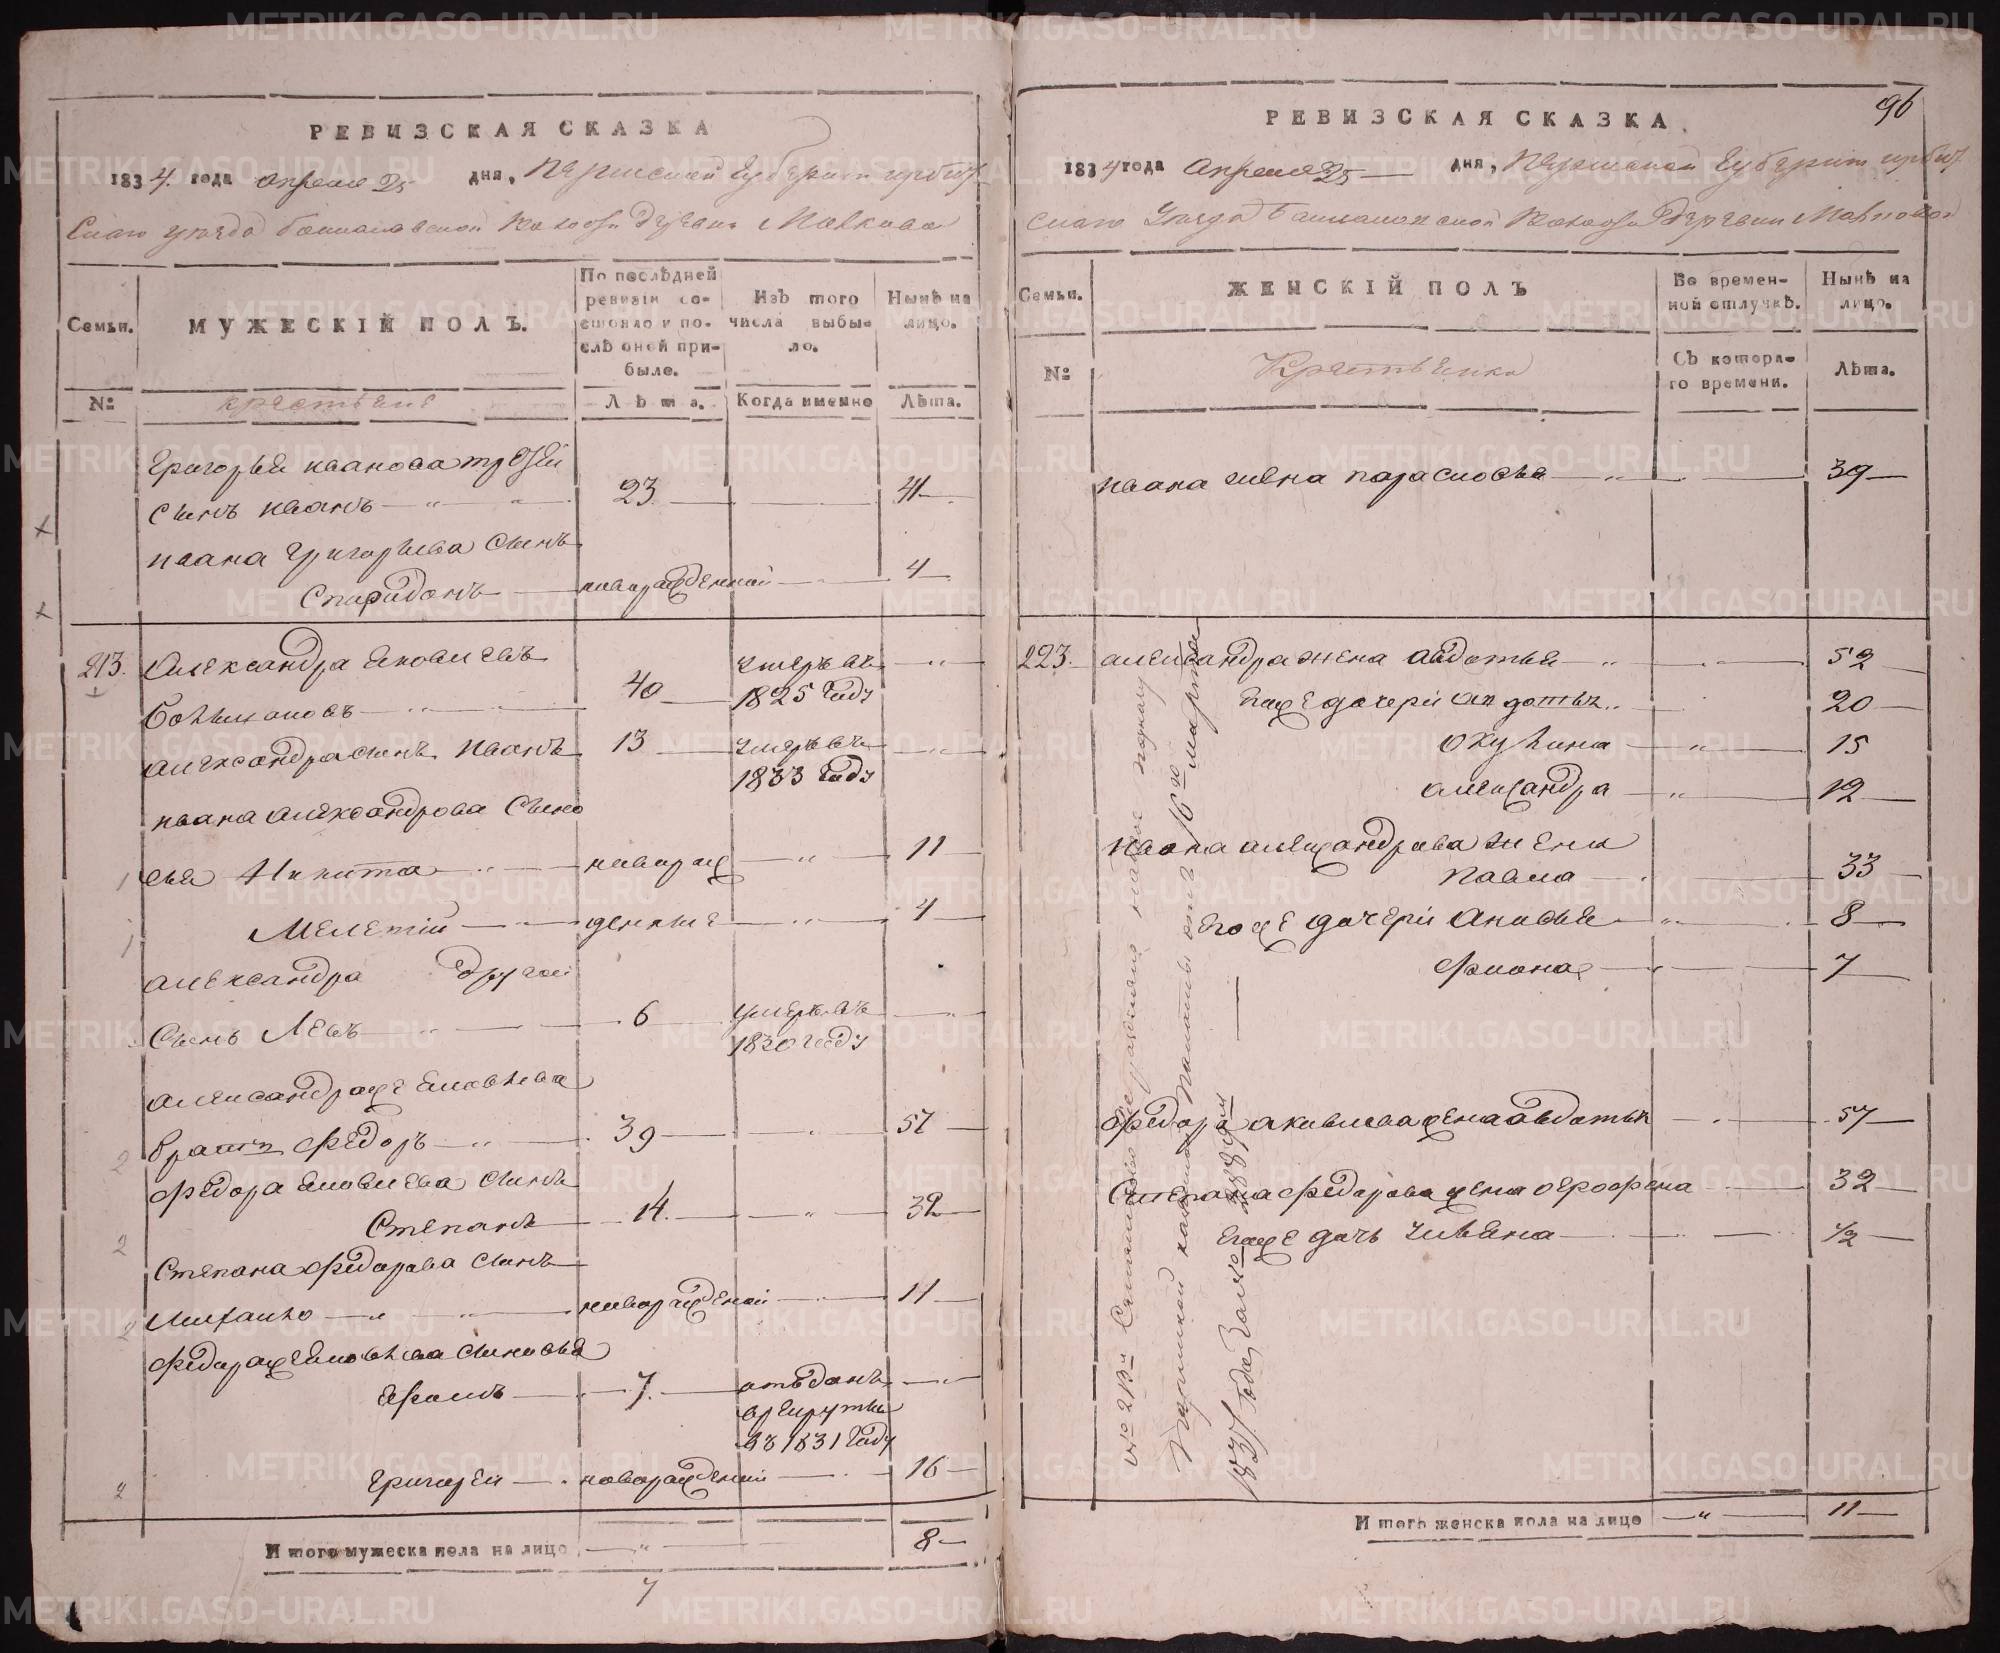 РЕВИЗСКАЯ СКАЗКА
1834 года апреля 25 дня, Пермской Губернии Ирбит
скаго уезда Волости Деревни
Семьи.
МУЖЕСКІЙ ПОЛЪ.
По послѣдней ревизіи состояло и послѣ оной прибыло.
Изъ того числа выбыло.
Нынѣ на лицо.
№
крестьяне
Лѣта.
Когда именно
Лѣта.
Григорья Иванова третій
сынъ Иванъ 23 41
Ивана Григорьева сынъ
Спиридонъ новорожденной 4
213. Александра Яковлевъ умеръ въ
40 1825 году
Александра сынъ Иванъ 13 умеръ въ
1833 году
Ивана Александрова сыно
вья Никита новорож 11
Мелетій денные 4
Александра другой
сынъ Левъ 6 умеръ въ
1830 году
Александра же Яковлева
братъ Федоръ 39 57
Федора Яковлева сынъ
Степанъ 14. 32
Степана Федорова сынъ
Михаило новорожденой 11
Федора же Яковлева сыновья
7. отъданъ
в рекруты
въ 1831 году
Григорей новорожденій 16
Итого мужеска пола на лицо 8
7
96
РЕВИЗСКАЯ СКАЗКА
1834 года апреля 25 дня, Пермской Губернии Ирбит
скаго Уезда Волости Деревни
Семьи.
ЖЕНСКІЙ ПОЛЪ
Во временной отлучкѣ.
Нынѣ на лицо.
№
Крестьянка
Съ котораго времени.
Лѣта.
Ивана жена Парасковья 39
223. Александра жена Авдотья 52
его же дочери Авдотья 20
Окулина 15
Александра 12
Ивана Александрова жена
33
его же дочери Анисья 8
Фиона 7
Федора Яковлева жена Авдотья 57
Степана Федорова жена 32
его же дочь Ульяна 1/2
Итого женска пола на лицо 11
METRIKI.GASO-URAL.RU